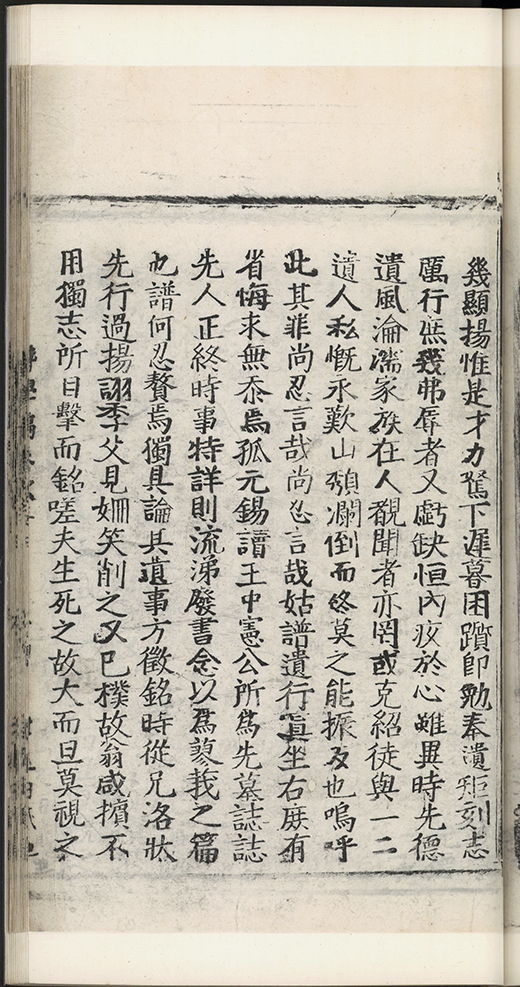 幾顯揚惟是才力駑下遲暮困躓即勉奉遺矩刻志
厲行庶幾弗辱者又虧缺恒內疚於心雖異時先德
遺風淪濡家族在人覩聞者亦罔或克紹徒與一二
遺人私慨永歎山頹瀾倒而終莫之能振及也嗚呼
此其罪尚忍言哉尚忍言哉姑譜遺行寘坐右庶有
省悔求無忝焉孤元錫讀王中憲公所為先墓誌誌
先人正終時事特詳則流涕廢書念以為蓼莪之篇
也譜何忍贅焉獨具論其遺事方徵銘時從兄洛狀
先行過揚詡季父見姍笑削之又已樸故翁咸擯不
用獨志所目擊而銘嗟夫生死之故大而旦莫視之